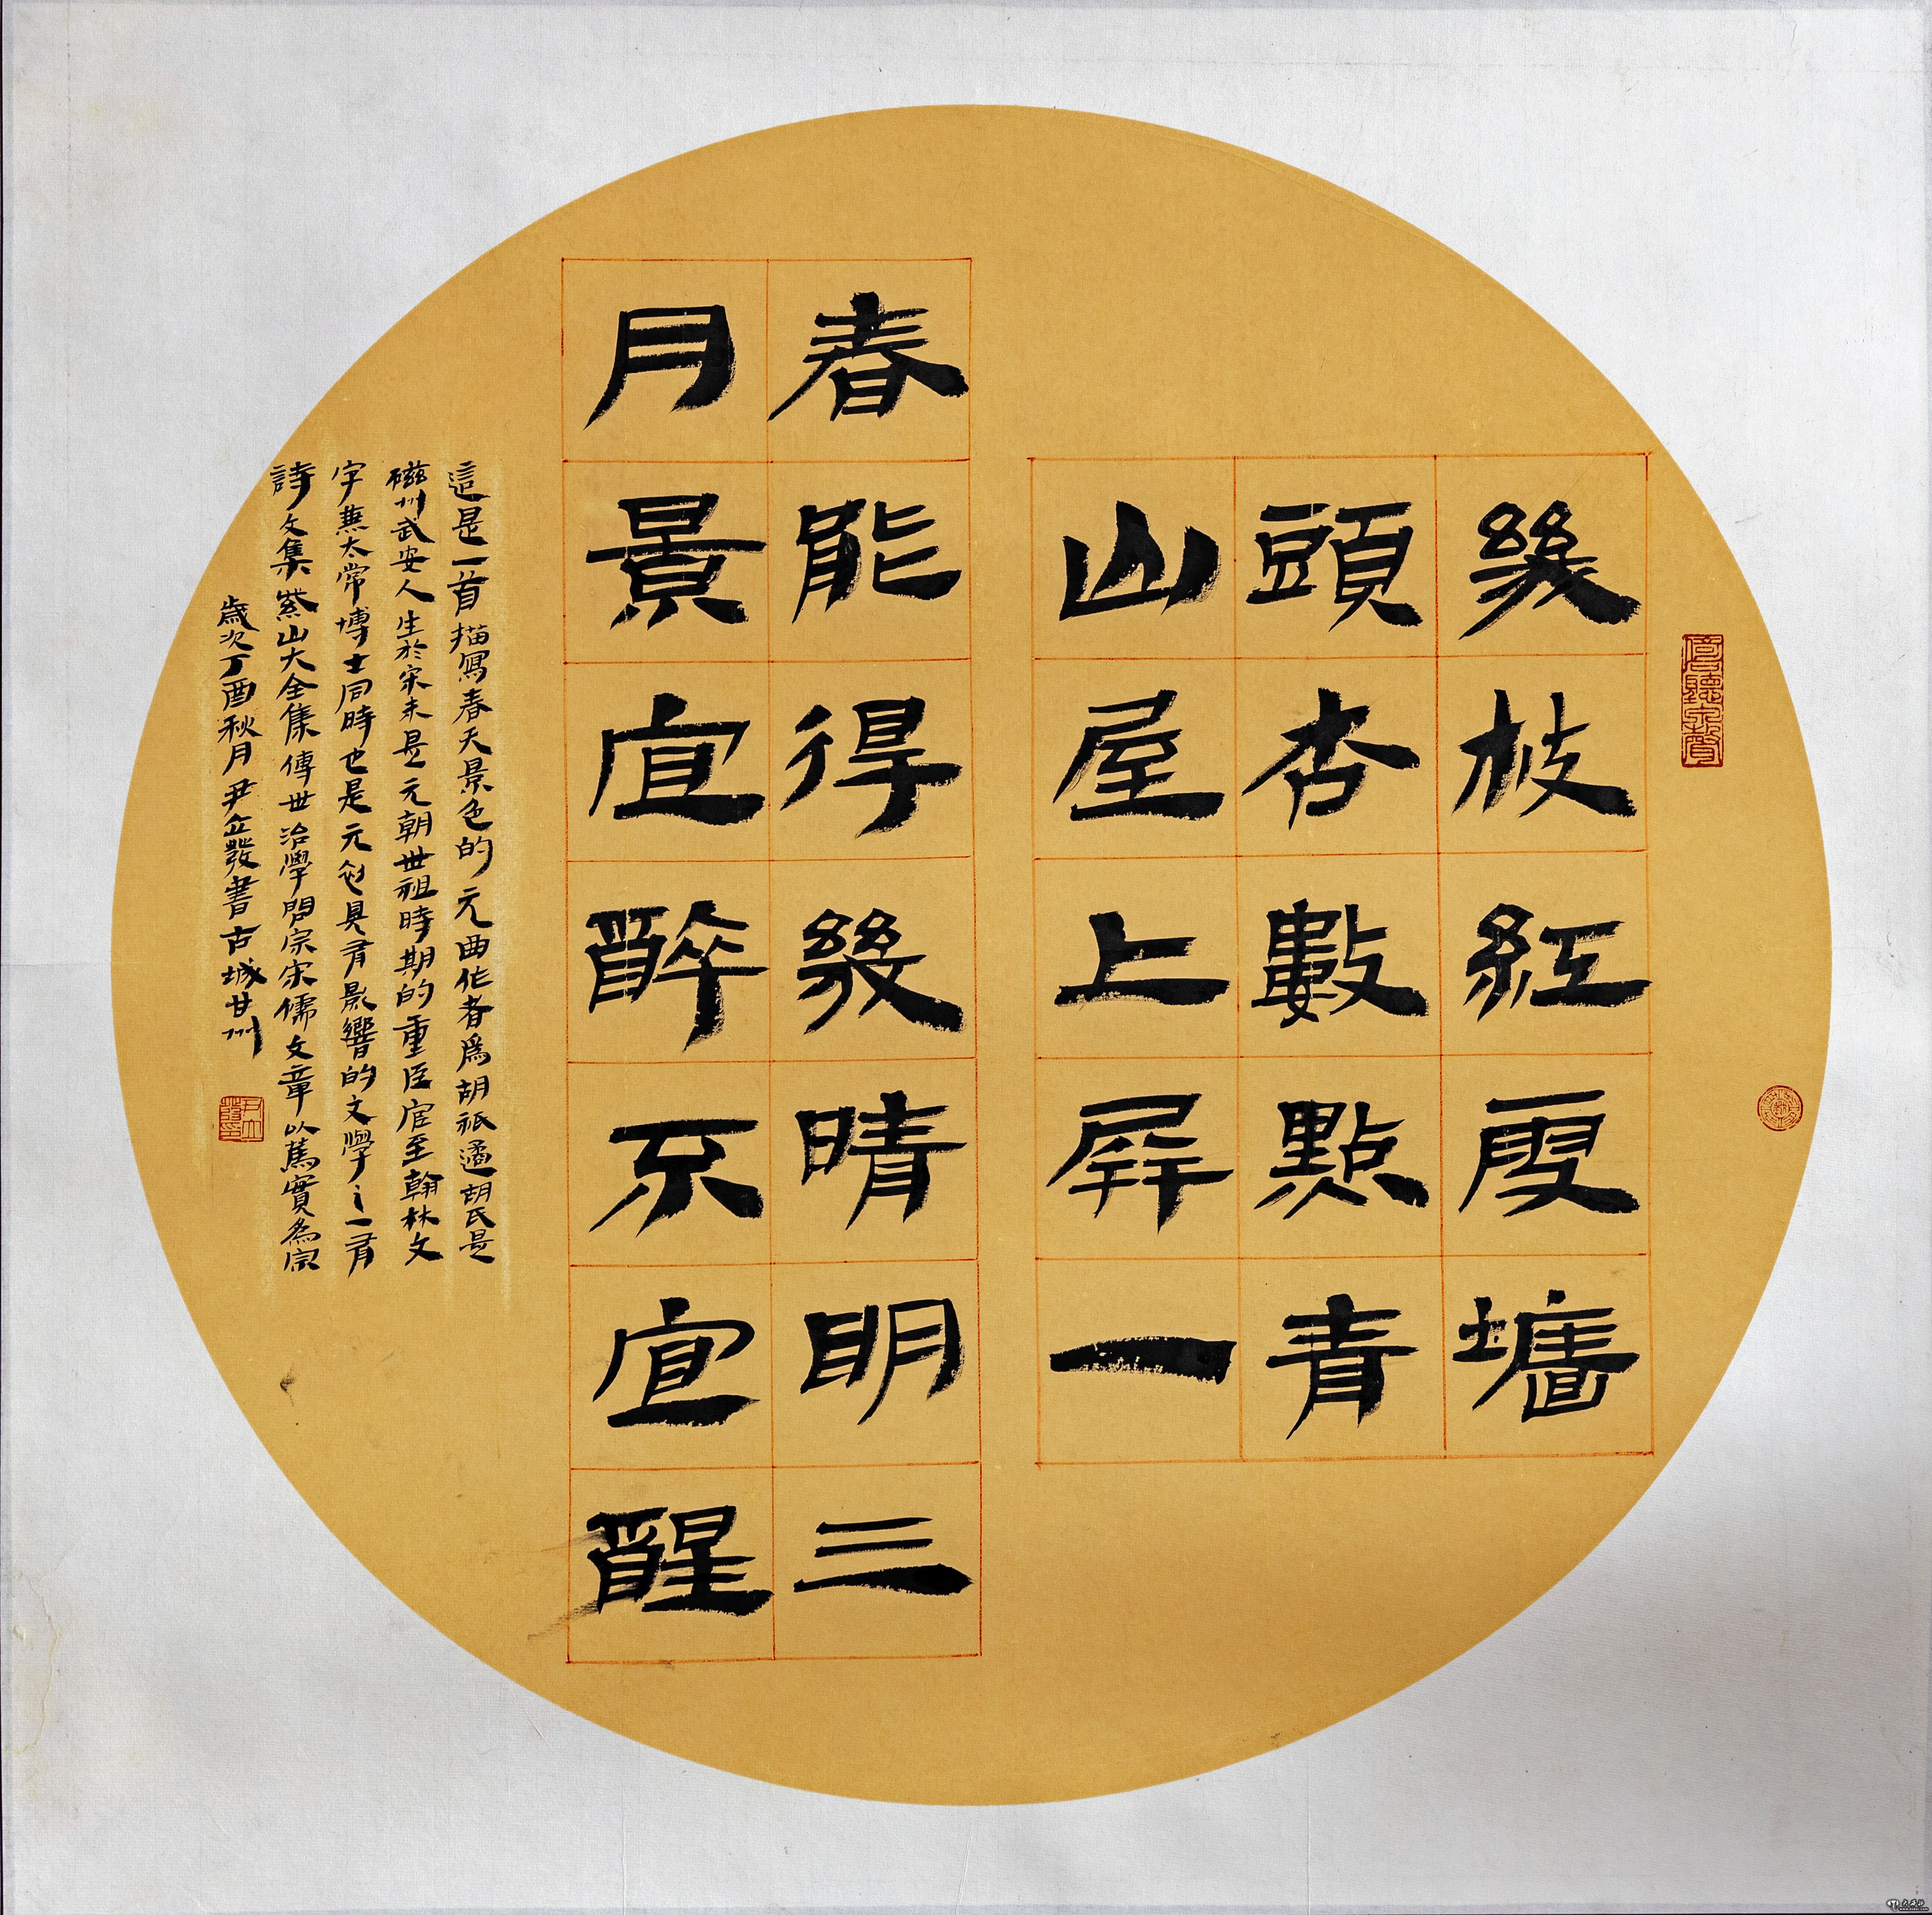 幾枝紅雪墻
頭杏數點青
山屋上屏一
春能得幾晴明三
月景宜醉不宜醒
這是一首描寫春天景色的元曲作者爲胡祇遹胡氏是
磁州武安人生於宋末是元朝世祖時期的重臣官至翰林文
字兼太常博士同時也是元初具有影響的文學之一有
詩文集紫山大全集傳世治學問宗宋儒文章以篤實為宗
歲次丁酉秋月尹立發書古城甘州